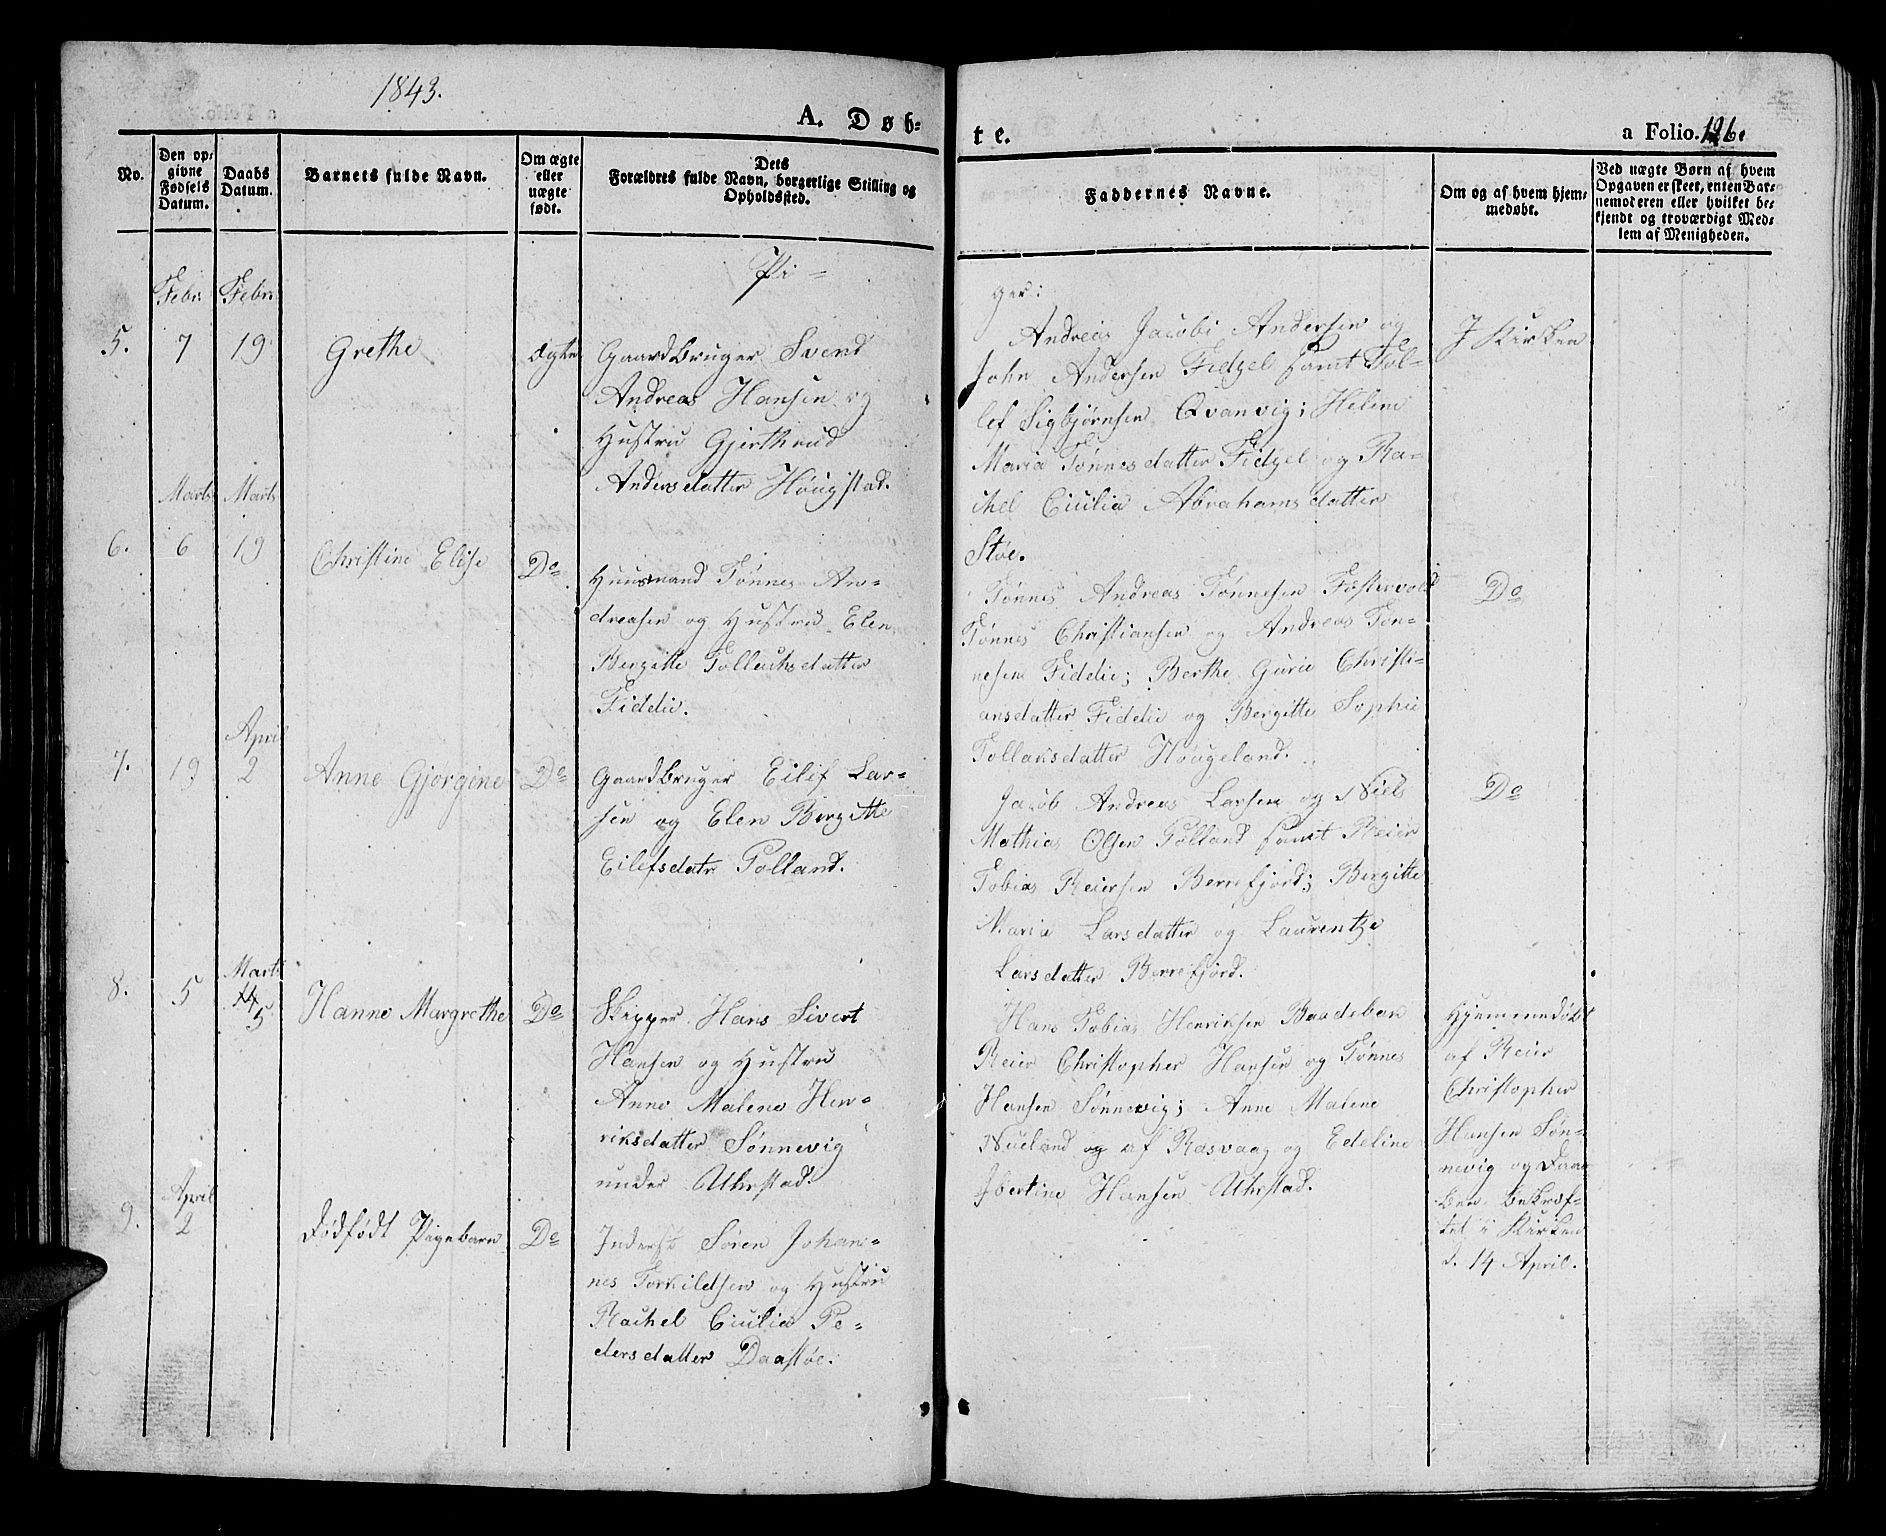 1843.
A. Døb-
te.
a Folio. 126.
No.
Den op-
givne
Fødsels
Datum.
Daabs
Datum.
Barnets fulde Navn.
Om ægte
eller
uægte
født.
Dets
Forældres fulde Navn, borgerlige Stilling og
Opholdssted.
Faddernes Navne.
Om og af hvem hjem-
medøbt.
Ved uægte Børn af hvem
Opgaven er skeet, enten Bar-
nemoderen eller hvilket be-
kjendt og troværdigt Med-
lem af Menigheden.
Pi-
ger:
Febr. Febr.
5. 7 19 Grethe ægte
Gaardbruger Svend
Andreas Hansen og
Hustru Gjerthrud
Andersdatter Høugstad.
Andreas Jacobi Andersen og
John Andersen Fidzel samt Tol-
lef Sigbjørnsen Qvanvig; Helene
Maria Tønnesdatter Fidzel og Ra-
chel Cicilia Abrahamsdatter
Støe.
I Kirken
Marts Marts
6. 6 19 Christine Elise Do
Huusmand Tønnes An-
dreasen og Hustru Elen
Bergitte Tollachsdatter
Fiddie.
Tønnes Andreas Tønnesen Fostervold
Tønnes Christiansen og Andreas Tøn-
nesen Fiddie; Berthe Gurie Christi-
ansdatter Fiddie og Bergitte Sophie
Tollaksdatter Høugeland.
Do
April
7. 19 2 Anne Gjørgine Do
Gaardbruger Eilif Lar-
sen og Elen Birgitte
Eilefsdatr Tolland.
Jacob Andreas Larsen og Niels
Mathias Olsen Tolland samt Reier
Tobias Reiersen Berrefjord; Bergitte
Marie Larsdatter og Laurentze
Larsdatter Berrefjord.
Do
Marts
8. 5 14 5 Hanne Margrethe Do
Skipper Hans Sivert
Hansen og Hustru
Anne Malene Hen-
riksdatter Sønnevig
under Uhrstad.
Hans Tobias Henriksen Baadsbak
Reier Christopher Hansen og Tønnes
Hansen Sønnevig; Anne Malene
Nueland og af Rasvaag og Edeline
Ibertine Hansen Uhrstad.
Hjemmedøbt
af Reier
Christopher
Hansen Søn-
nevig og Daa-
ben bekræf-
tet i Kirken
d. 14 April.
April
9. 2 Dødfødt Pigebarn Do
Inderst Søren Johan-
nes Torkildsen og Hustru
Rachel Cicilia Pe-
dersdatter Daastøe.